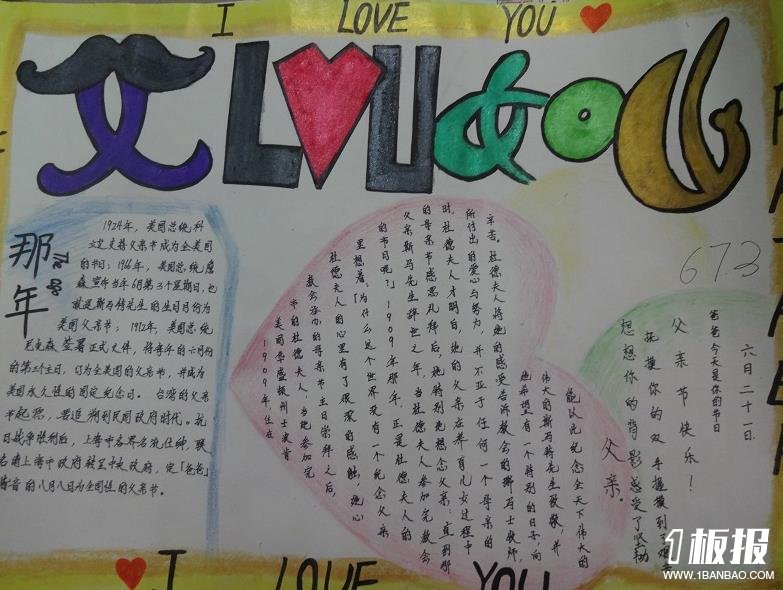 I LOVE YOU
父 L U 如山
那年
88
1924年，美国总统科
立芝支持父亲节成为全美国
的节日；1966年，美国总统詹
森宣布当年6月第3个星期日，也
就是斯马特先生的生日月份为
美国父亲节；1972年，美国总统
尼克森签署正式文件，将每年的六月份
的第三个主日，订为全美国的父亲节，并成为
美国永久性的国定纪念日。台湾的父亲
节起源，要追溯到民国政府时代。抗
日战争胜利后，上海市各界名流仕绅，联
名请上海市政府转呈中央政府，定「爸爸」
谐音的八月八日为全国性的父亲节。
1909年，住在
美国华盛顿州士波肯
市的杜德夫人，当她参加完
教会举办的母亲节主日崇拜之后，
杜德夫人的心里有了很深的感触，她心
里想着：「为什么这个世界没有一个纪念父亲
的节日呢？」1909年那年，正是杜德夫人的
父亲斯马特先生辞世之年，当杜德夫人参加完教会
的母亲节感恩礼拜后，她特别地想念父亲；直到那
时，杜德夫人才明白，她的父亲在养育儿女过程中
所付出的爱心与努力，并不亚于任何一个母亲的
辛苦。杜德夫人将她的感受告诉教会的瑞马士牧师，
她希望有一个特别的日子，向
伟大的斯马特先生致敬，并
能以此纪念全天下伟大的
父亲。
673
六月二十一日
爸爸今天是你的节日
父亲节快乐！
抚摸你的双手
想想你的背影感受了坚韧
I LOVE YOU
1板报
WWW.1BANBAO.COM